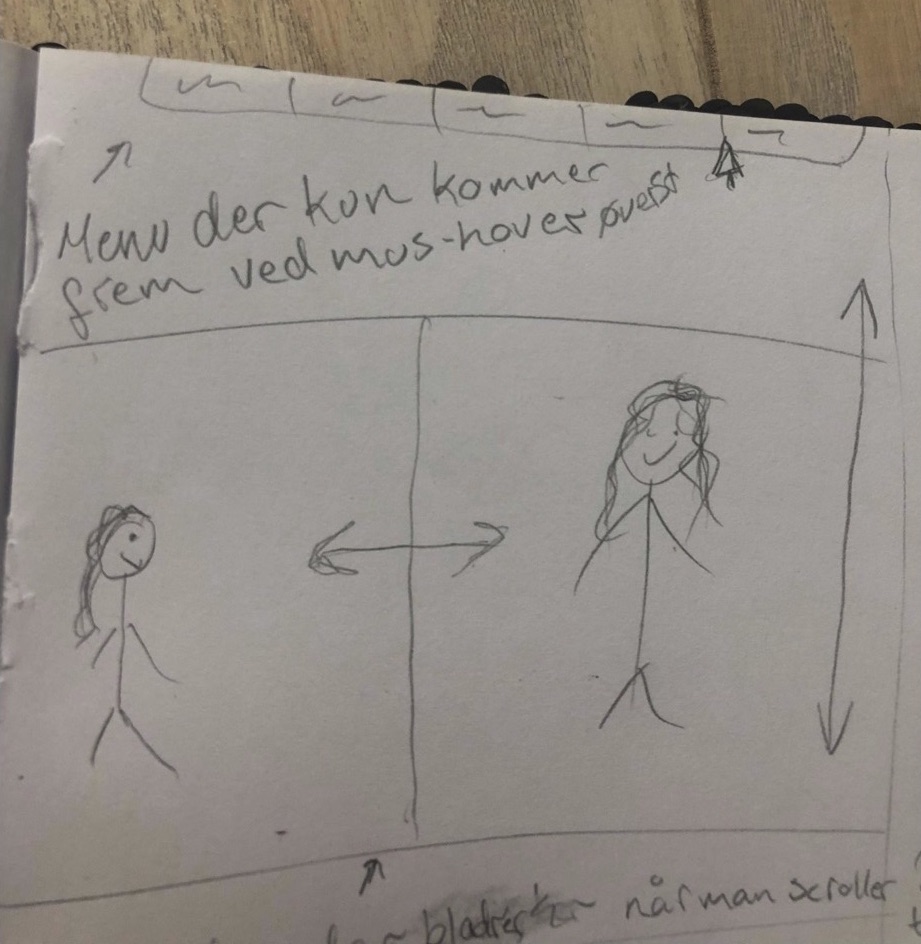 Menu der kun kommer
frem ved mus-hover øverst
bladrer når man scroller